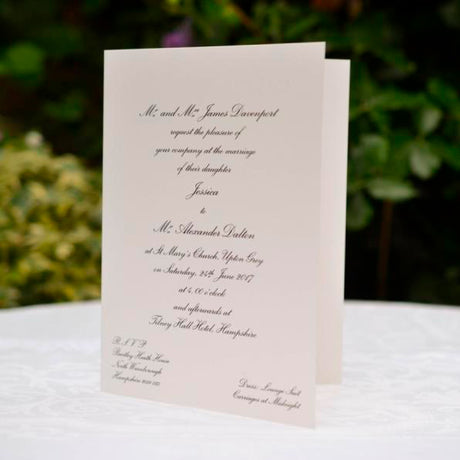 Mr. and Mrs. James Davenport
request the pleasure of
your company at the marriage
of their daughter
Jessica
to
Mr. Alexander Dalton
at St Mary's Church, Upton Grey
on Saturday, 24th June 2017
at 4.00 o'clock
and afterwards at
Tilney Hall Hotel, Hampshire
R.S.V.P
Heath House
North Warnborough
Hampshire
Dress: Lounge Suit
Carriages at Midnight